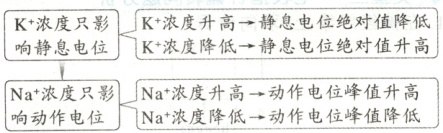 K⁺浓度只影
响静息电位
K⁺浓度升高→静息电位绝对值降低
K⁺浓度降低→静息电位绝对值升高
Na⁺浓度只影
响动作电位
Na⁺浓度升高→动作电位峰值升高
Na⁺浓度降低→动作电位峰值降低